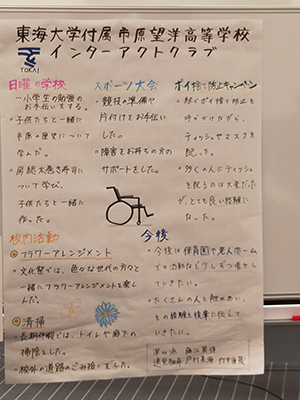 東海大学付属市原望洋高等学校
TOKAI
インターアクトクラブ
日曜の学校
…小学生の勉強の
お手伝いをする。
・子供たちと一緒に
市原の歴史について
学んだ。
・房総太巻き寿司に
ついて学び、
子供たちと一緒に
作った。
スポーツ大会
・競技の準備や
片付けをお手伝い
した。
・障害をお持ちの方の
サポートをした。
ポイ捨て防止キャンペーン
・ポイ捨て防止を
呼びかけながら、
ティッシュやマスクを
配った。
・多くの人にティッシュ
を配るのは大変だった
が、とても良い経験に
なった。
校内活動
フラワーアレンジメント
・文化祭では、色々な世代の方々と
一緒にフラワーアレンジメントを楽し
んだ。
清掃
・長期休暇では、トイレや廊下の
掃除をした。
・校外の道路のごみ拾いをした。
今後
・今後は保育園や老人ホーム
での活動など少しずつ増やし
ていきたい。
・たくさんの人と触れあい、
その経験を後輩に伝えて
いきたい。